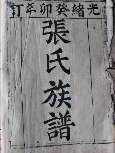 光緒癸卯年訂
張氏族譜